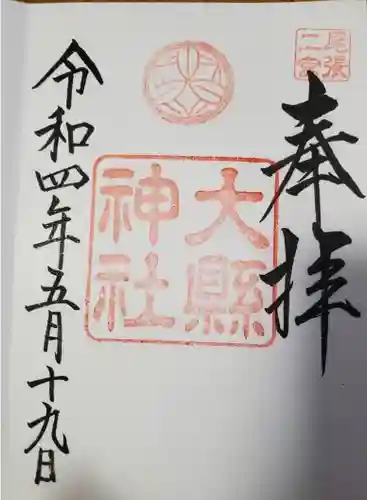 尾張
二宮
奉拝
大縣
神社
令和四年五月十九日